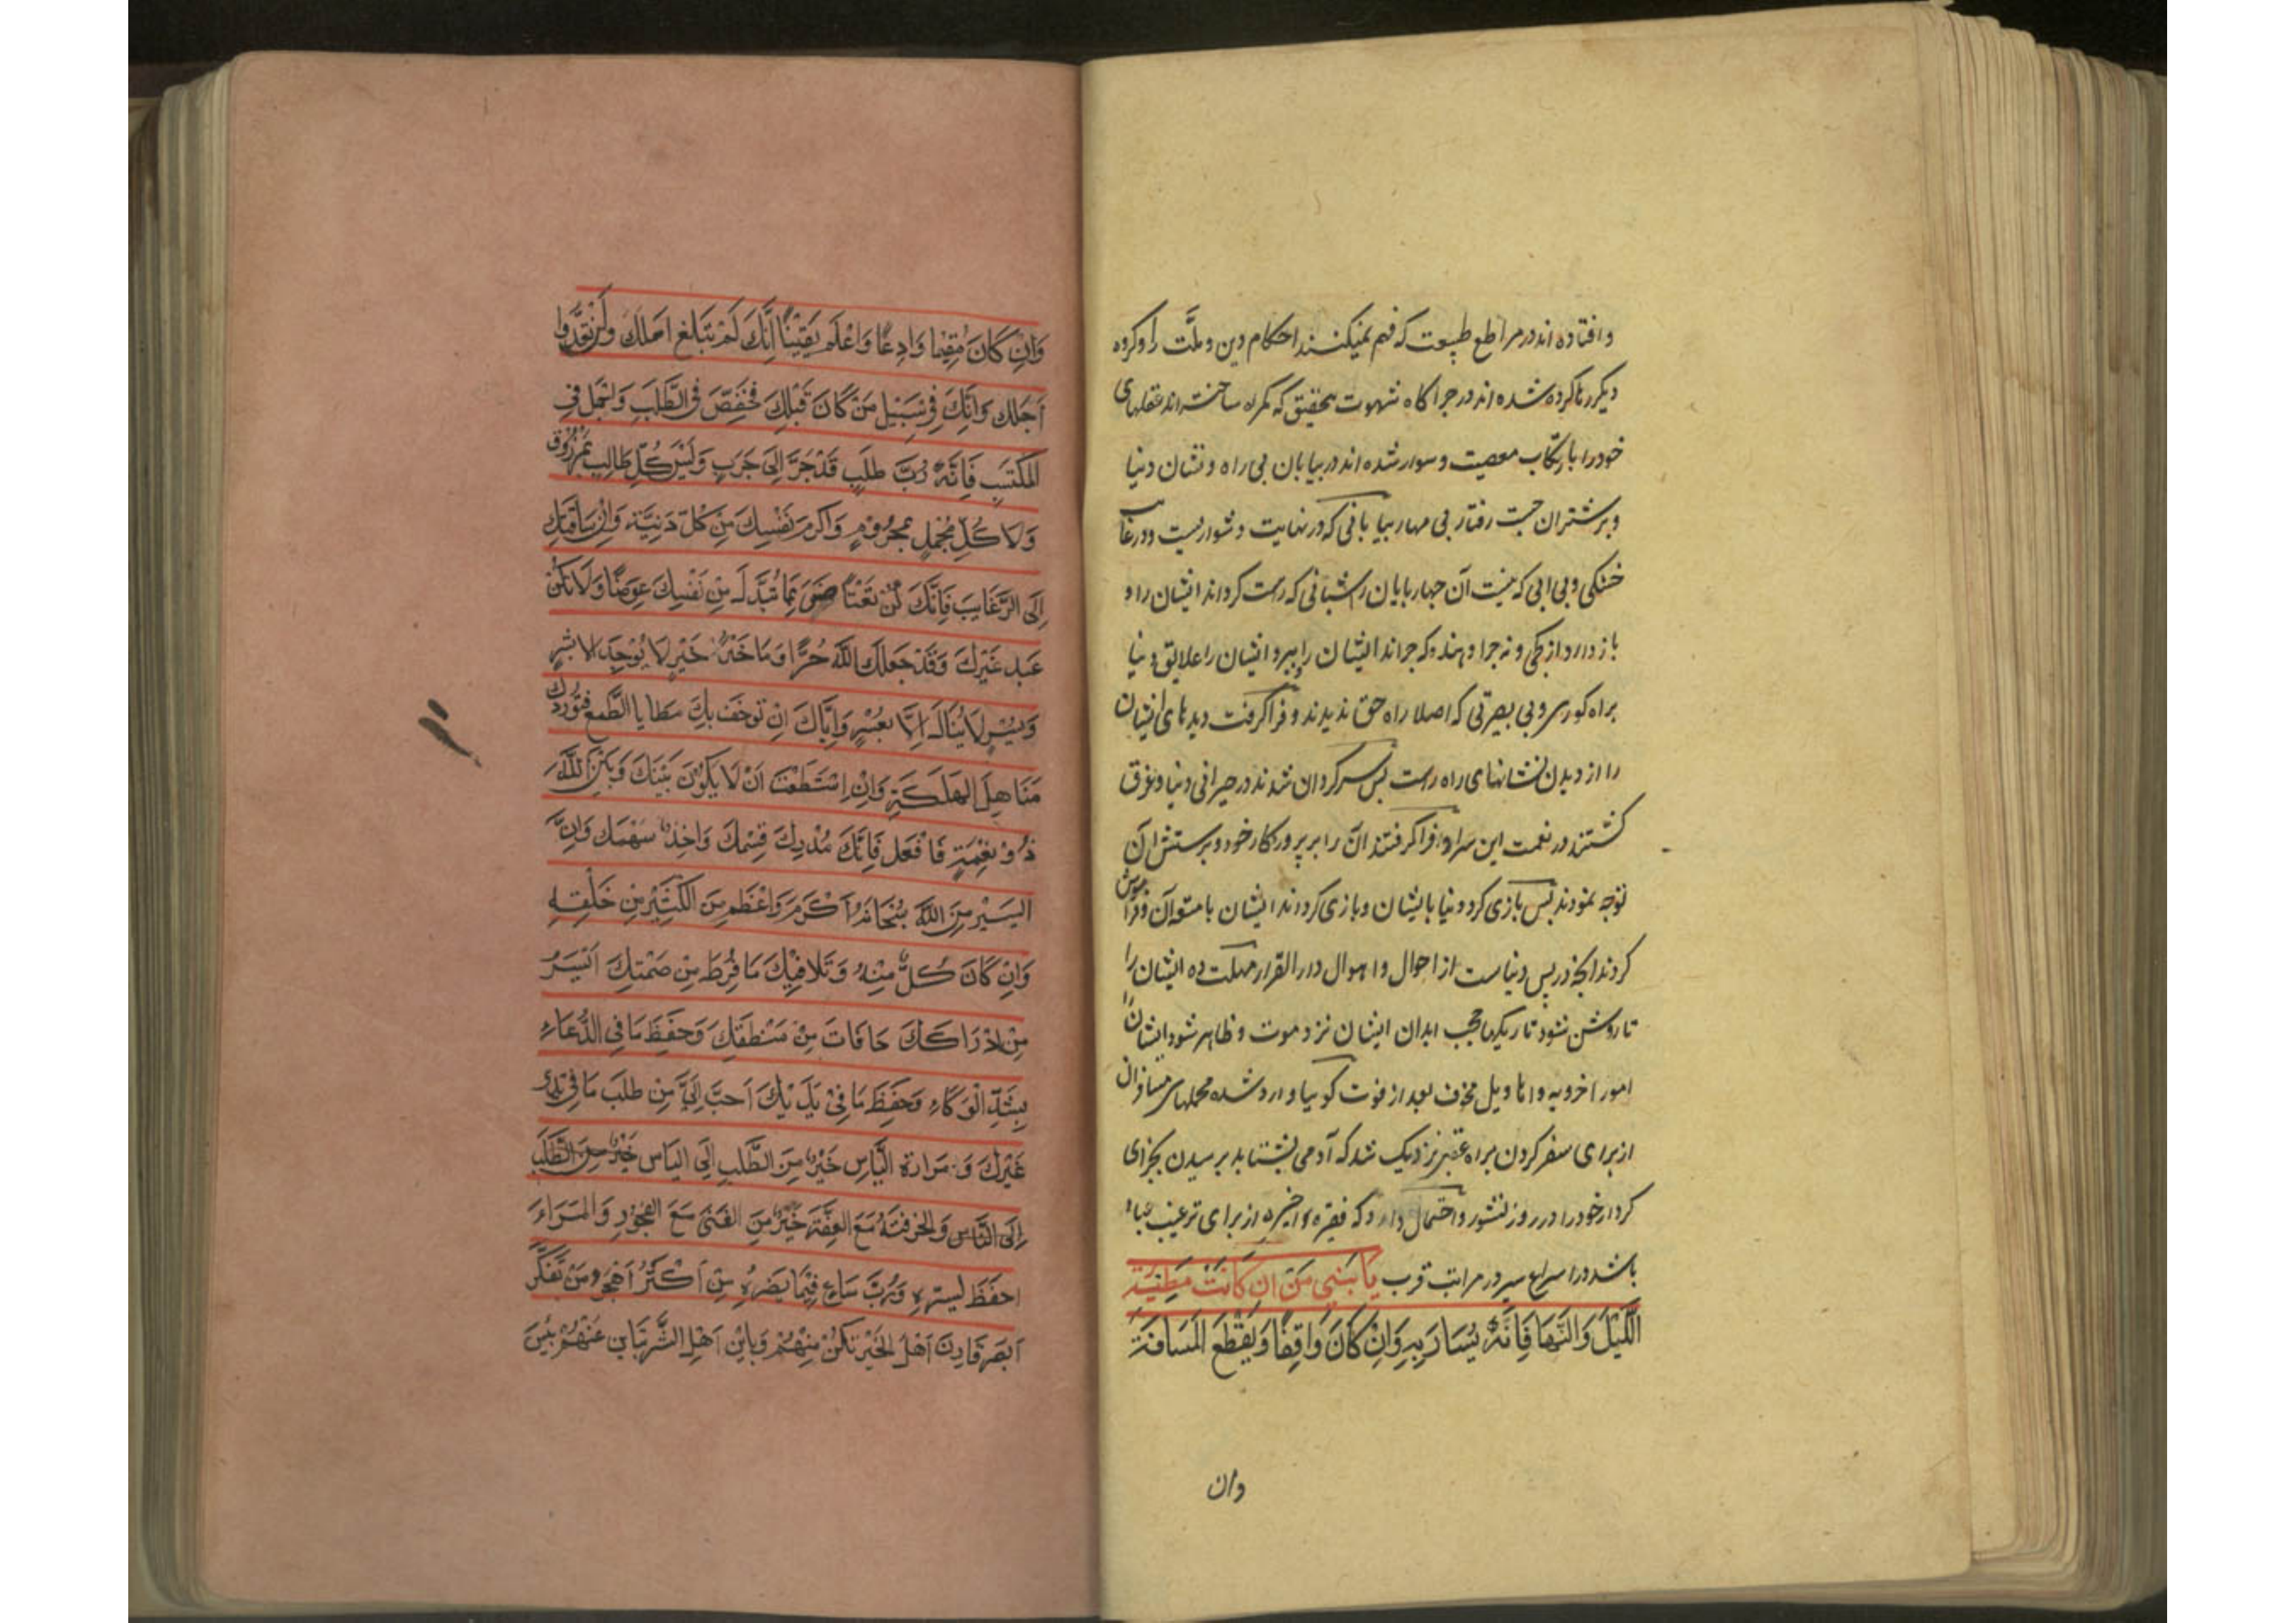 و افتاده اند در مراطع طبیعت که فهم نمیکنند احکام دین و ملّت را و کروه
دیکر رها کرده شده اند در جراکاه شهوت بتحقیق که کمراه ساخته اند عقلهای
خود را بارتکاب معصیت و سوار شده اند در بیابان بی راه و نشان دنیا
و بر شتران جست رفتار بی مهار بیابانی که در نهایت دشواریست و در غایت
خشکی و بی ابی که نیست آن جهاربایان را شبانی که راست کرداند ایشان را و
باز دارد از کجی و نه جرا دهنده که جراند ایشان را ببرد ایشان را علایق دنیا
براه کوری و بی بصرتی که اصلا راه حق ندیدند و فرا کرفت دیدهای ایشان
را از دیدن نشانهای راه راست بس سرکردان شدند در حیرانی دنیا و غرق
کشتند در نعمت این سرا و فرا کرفتند ان را بر پرورکار خود و برستش آن
توجه نمودند بس بازی کرد دنیا بایشان و بازی کردند ایشان با متوان و فراموش
کردند انچه در پس دنیاست از احوال و اهوال دار القرار مهلت ده ایشان را
تا روشن شود تاریکیها حجب ابدان ایشان نزد موت و ظاهر شود ایشان را
امور اخرویه و اهاویل مخوف بعد از فوت کوییا وارد شده محلهای مسافران
از برای سفر کردن براه عقبی نزدیک شد که آدمی بشتابد برسیدن بجزای
کردار خود را در روز نشور و احتمال دارد که فقره اخیره از برای ترغیب عباد
باشد در اسراع سیر در مراتب قرب یَا بُنَیَّ مَنْ ان کَانَتْ مَطِیَّتَهُ
اللَّیْلَ وَالنَّهَا فَاِنَّهُ یُسَارَ بِهِ وَاِنْ کَانَ وَاقِفًا وَیَقْطَعَ الْمَسَافَةَ
وان
وَاِنْ کَانَ مُقِیْمًا وَادِعًا وَاعْلَم یَقِیْنًا اَنَّکَ لَمْ تَبْلغ املک وَلَنْ تَعْدُوا
اَجلک وَاَنَّکَ فِی سَبِیْل مَنْ کَانَ قَبْلِکَ فَخَفِّضَ فِی الطَّلَبِ وَلتجمل فی
المکتسَب فَاِنَّهُ رُبَّ طَلَبٍ قَدْ جَرَّ اِلیٰ حَرَبٍ وَلَیْسَ کُلّ طَالِب بمرزوق
وَلَا کُلِّ مُجْمِلٍ بمَحْرُوْمٍ وَاکْرَمَ نَفْسِکَ مِنْ کُلّ دَنِیَّة وَاِنْ سَاقَتْک
اِلَی الرَّغَایَب فَاِنَّکَ لَنْ تَعْتَاضَ بِمَا تَبْذل مِنْ نَفْسِکَ عِوَضًا وَلَا تکن
عَبد غَیْرِکَ وَقَدْ جَعَلَکَ اللَّهُ حُرًّا وَمَا خَیْرُ خَیْرٍ لَا یُوْجَد الا بِشَرٍّ
وَیُسْرٍ لَا یُنَالُ اِلَّا بعُسْرٍ وَاِیَّاکَ انْ توجف بِکَ مَطَایا الطَّمع فتوردک
مَنَاهِلَ الهَلَکَةِ وَاِنِ اسْتَطَعْتَ اَنْ لَا یَکُوْنَ بَیْنَکَ وَبَیْنَ اللَّهِ
ذُوْ نِعْمَةٍ فَافْعَل فَاِنَّکَ مُدْرِکَ قِسْمِکَ وَاخِذ سَهْمَک وَاِنَّ
الیَسِیْر مِنَ اللَّهِ سُبْحَانَهُ اَکْرَمَ وَاعْظَم مِنَ الکَثِیْر مِنْ خَلْقِه
وَاِنْ کَانَ کُلٌّ مِنْهُ وَتَلَافِیْکَ مَا فرَطَ مِنْ صَمْتِکَ اَیْسَرُ
مِنْ اِدْرَاکَکَ مَا فَاتَ مِنْ مَنْطقِکَ وَحِفْظَ مَا فِی الوعَاءِ
بِشَدِّ الْوِکَاءِ وَحِفْظَ مَا فِیْ یَدَیْکَ اَحبَّ اِلَیَّ مِنْ طلَبَ مَا فِیْ ید
غَیْرِکَ وَ مَرَارة الْیَاس خَیْرٌ مِنَ الطَّلَب اِلَی الیَاس خَیْرٌ مِنَ الطَّلَب
اِلَی النَّاس وَالحِرْفَةُ مَعَ العِفَّةِ خَیْرٌ مِنَ الغِنَی مَعَ الفجُوْرِ وَالمَرَاءِ
احفَظَ لِسِرِّهِ وَرُبَّ سَاع فِیْمَا یَضُرُّهُ مِنْ اَکْثَرَ اَهْجَرَ وَمَنْ تَفَکَّرَ
اَبْصَرَ قَارِنَ اَهْلَ الخَیْرِ تَکُنْ مِنْهُمْ وَبایِن اَهْل الشَّرِّ تَبَاین عَنْهُمْ بِئْسَ